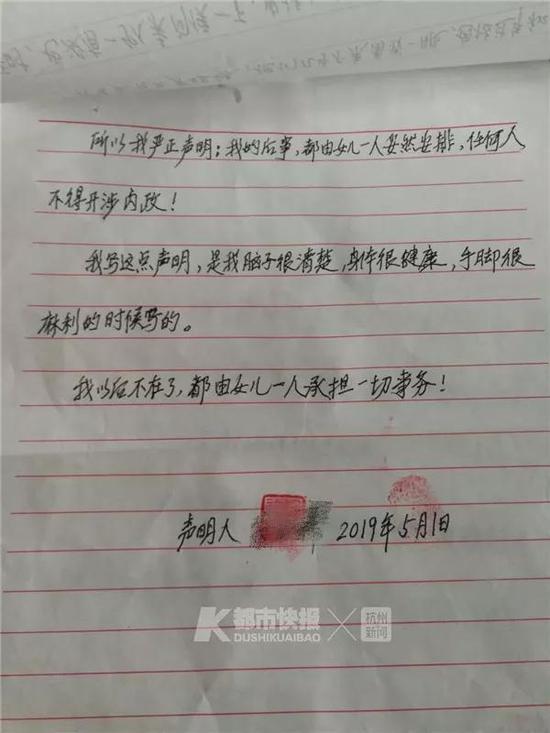 所以我严正声明：我的后事，都由女儿一人妥然安排，任何人
不得开涉内政！
我写这点声明，是我脑子很清楚，身体很健康，手脚很
麻利的时候写的。
我以后不在了，都由女儿一人承担一切事务！
声明人
2019年5月1日
都市快报
DUSHIKUAIBAO
杭州
新闻